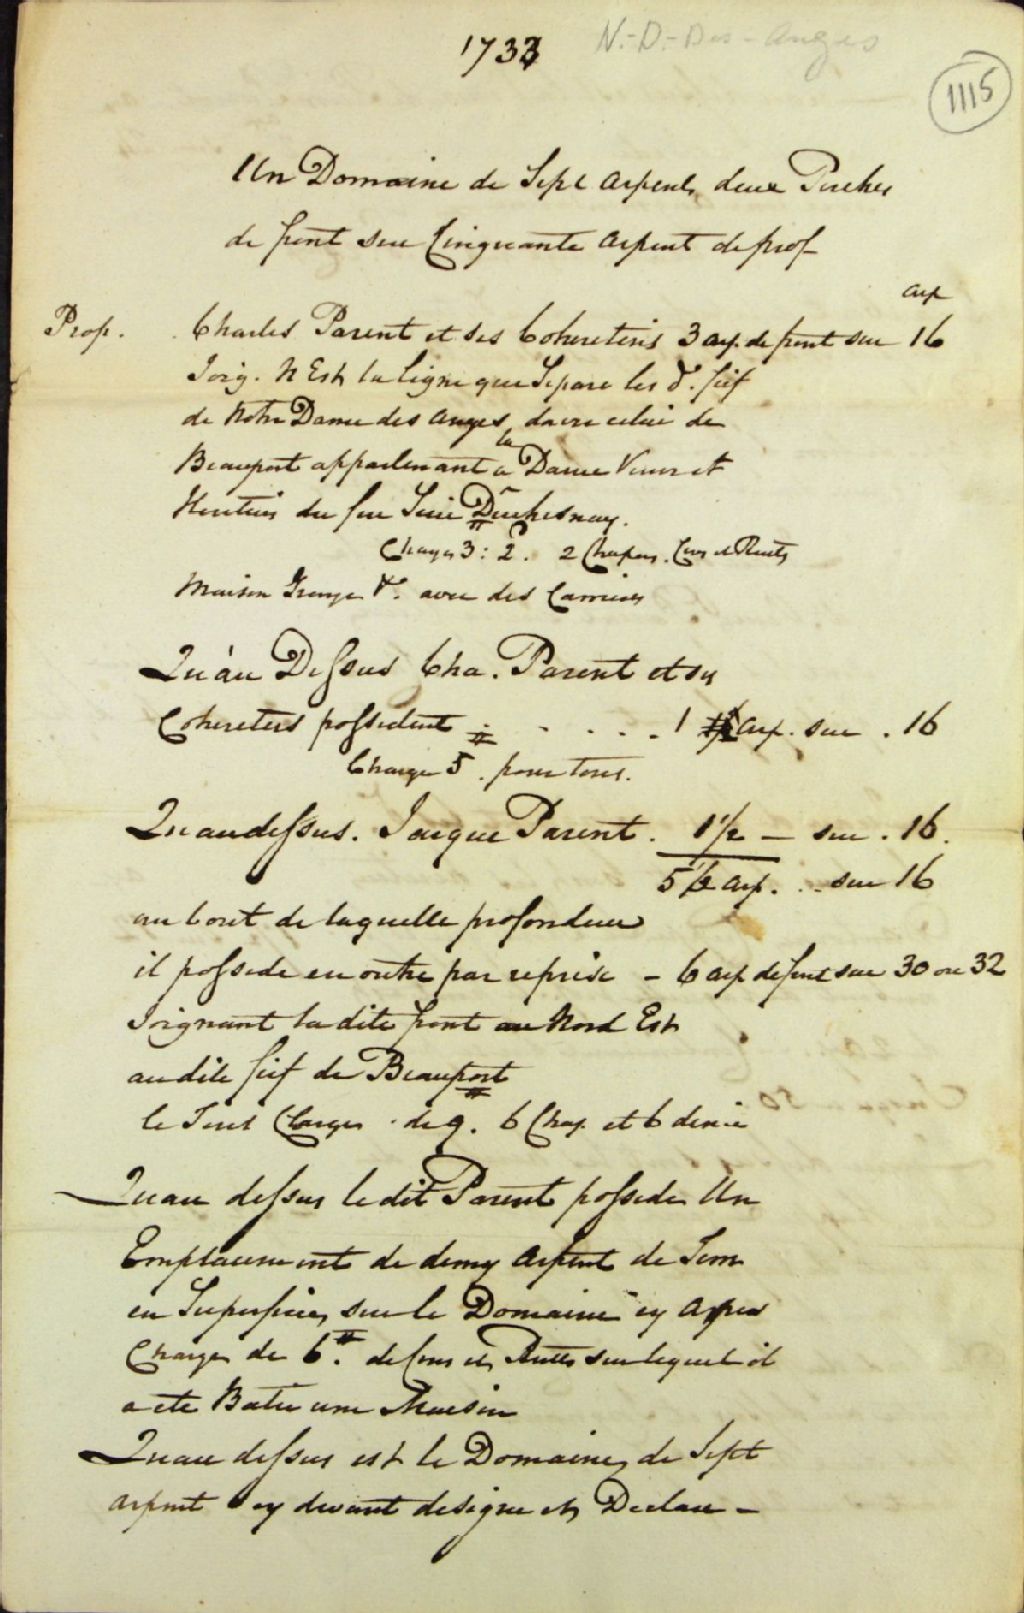 1733 N.-D.-Des-Anges
1115
Un Domaine de Sept arpents deux Perches
de front sur Cinquante arpent de prof
arp
Prop. Charles Parent et ses Coheretiers 3 arp. de front sur 16
Joig. N Est la ligne que Separe les d. fief
de Notre Dame des Anges, davec celui de
Beauport appartenant a la Dame Veuve et
Heritiers du feu Sieur Duchesnay.
Charges 3: 2. 2 Chapons. Cens et Rents
Maison Grange &. avec des Carrieres
Qu'au Dessus Cha. Parent et ses
Coheretiers possedent . . . . 1 ½ arp. sur . 16
Charge 5 . pour tous.
Qu audessus. Jacque Parent. 1½ — sur . 16.
5 ½ arp. .. sur 16
au bout de laquelle profondeur
il possede en outre par reprise - 6 arp de front sur 30 ou 32
Joignant la dite front au Nord Est
au dite fief de Beauport
le Tout Charges de 9. 6 Chap. et 6 denie
Quau dessus le dit Parent possede Un
Emplacement de demy Arpent de Terre
en Superficie, sur le Domaine cy Apres
Charge de 6 #. de Cens et Rentes sur lequel il
a ete Batie une Maison
Quau dessus est le Domaine, de Sept
arpent cy devant designe et Declare -